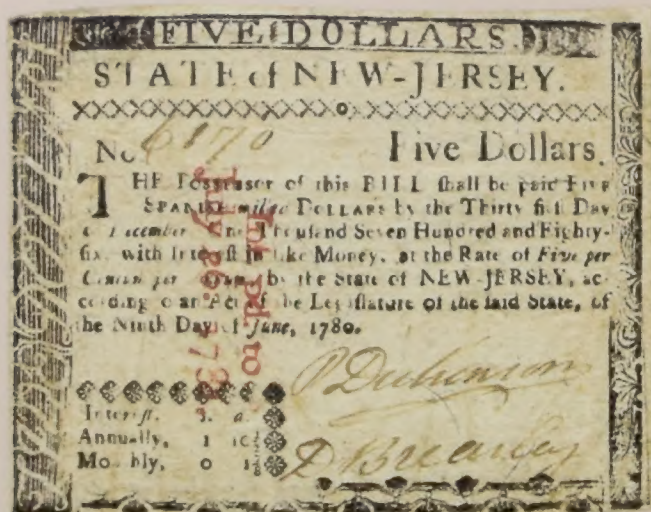 FIVE DOLLARS.
STATE of NEW-JERSEY.
No 6170 Five Dollars.
THE Possessor of this BILL shall be paid FIVE
SPANISH milled DOLLARS by the Thirty first Day
of December One Thousand Seven Hundred and Eighty-
six, with Interest in like Money, at the Rate of Five per
Centum per Annum, by the State of NEW-JERSEY, ac-
cording to an Act of the Legislature of the said State, of
the Ninth Day of June, 1780.
Int. pd. to
P Dickinson
Interest. s. d.
Annually, 1 10½
Monthly, 0 1⅞
D Brearley